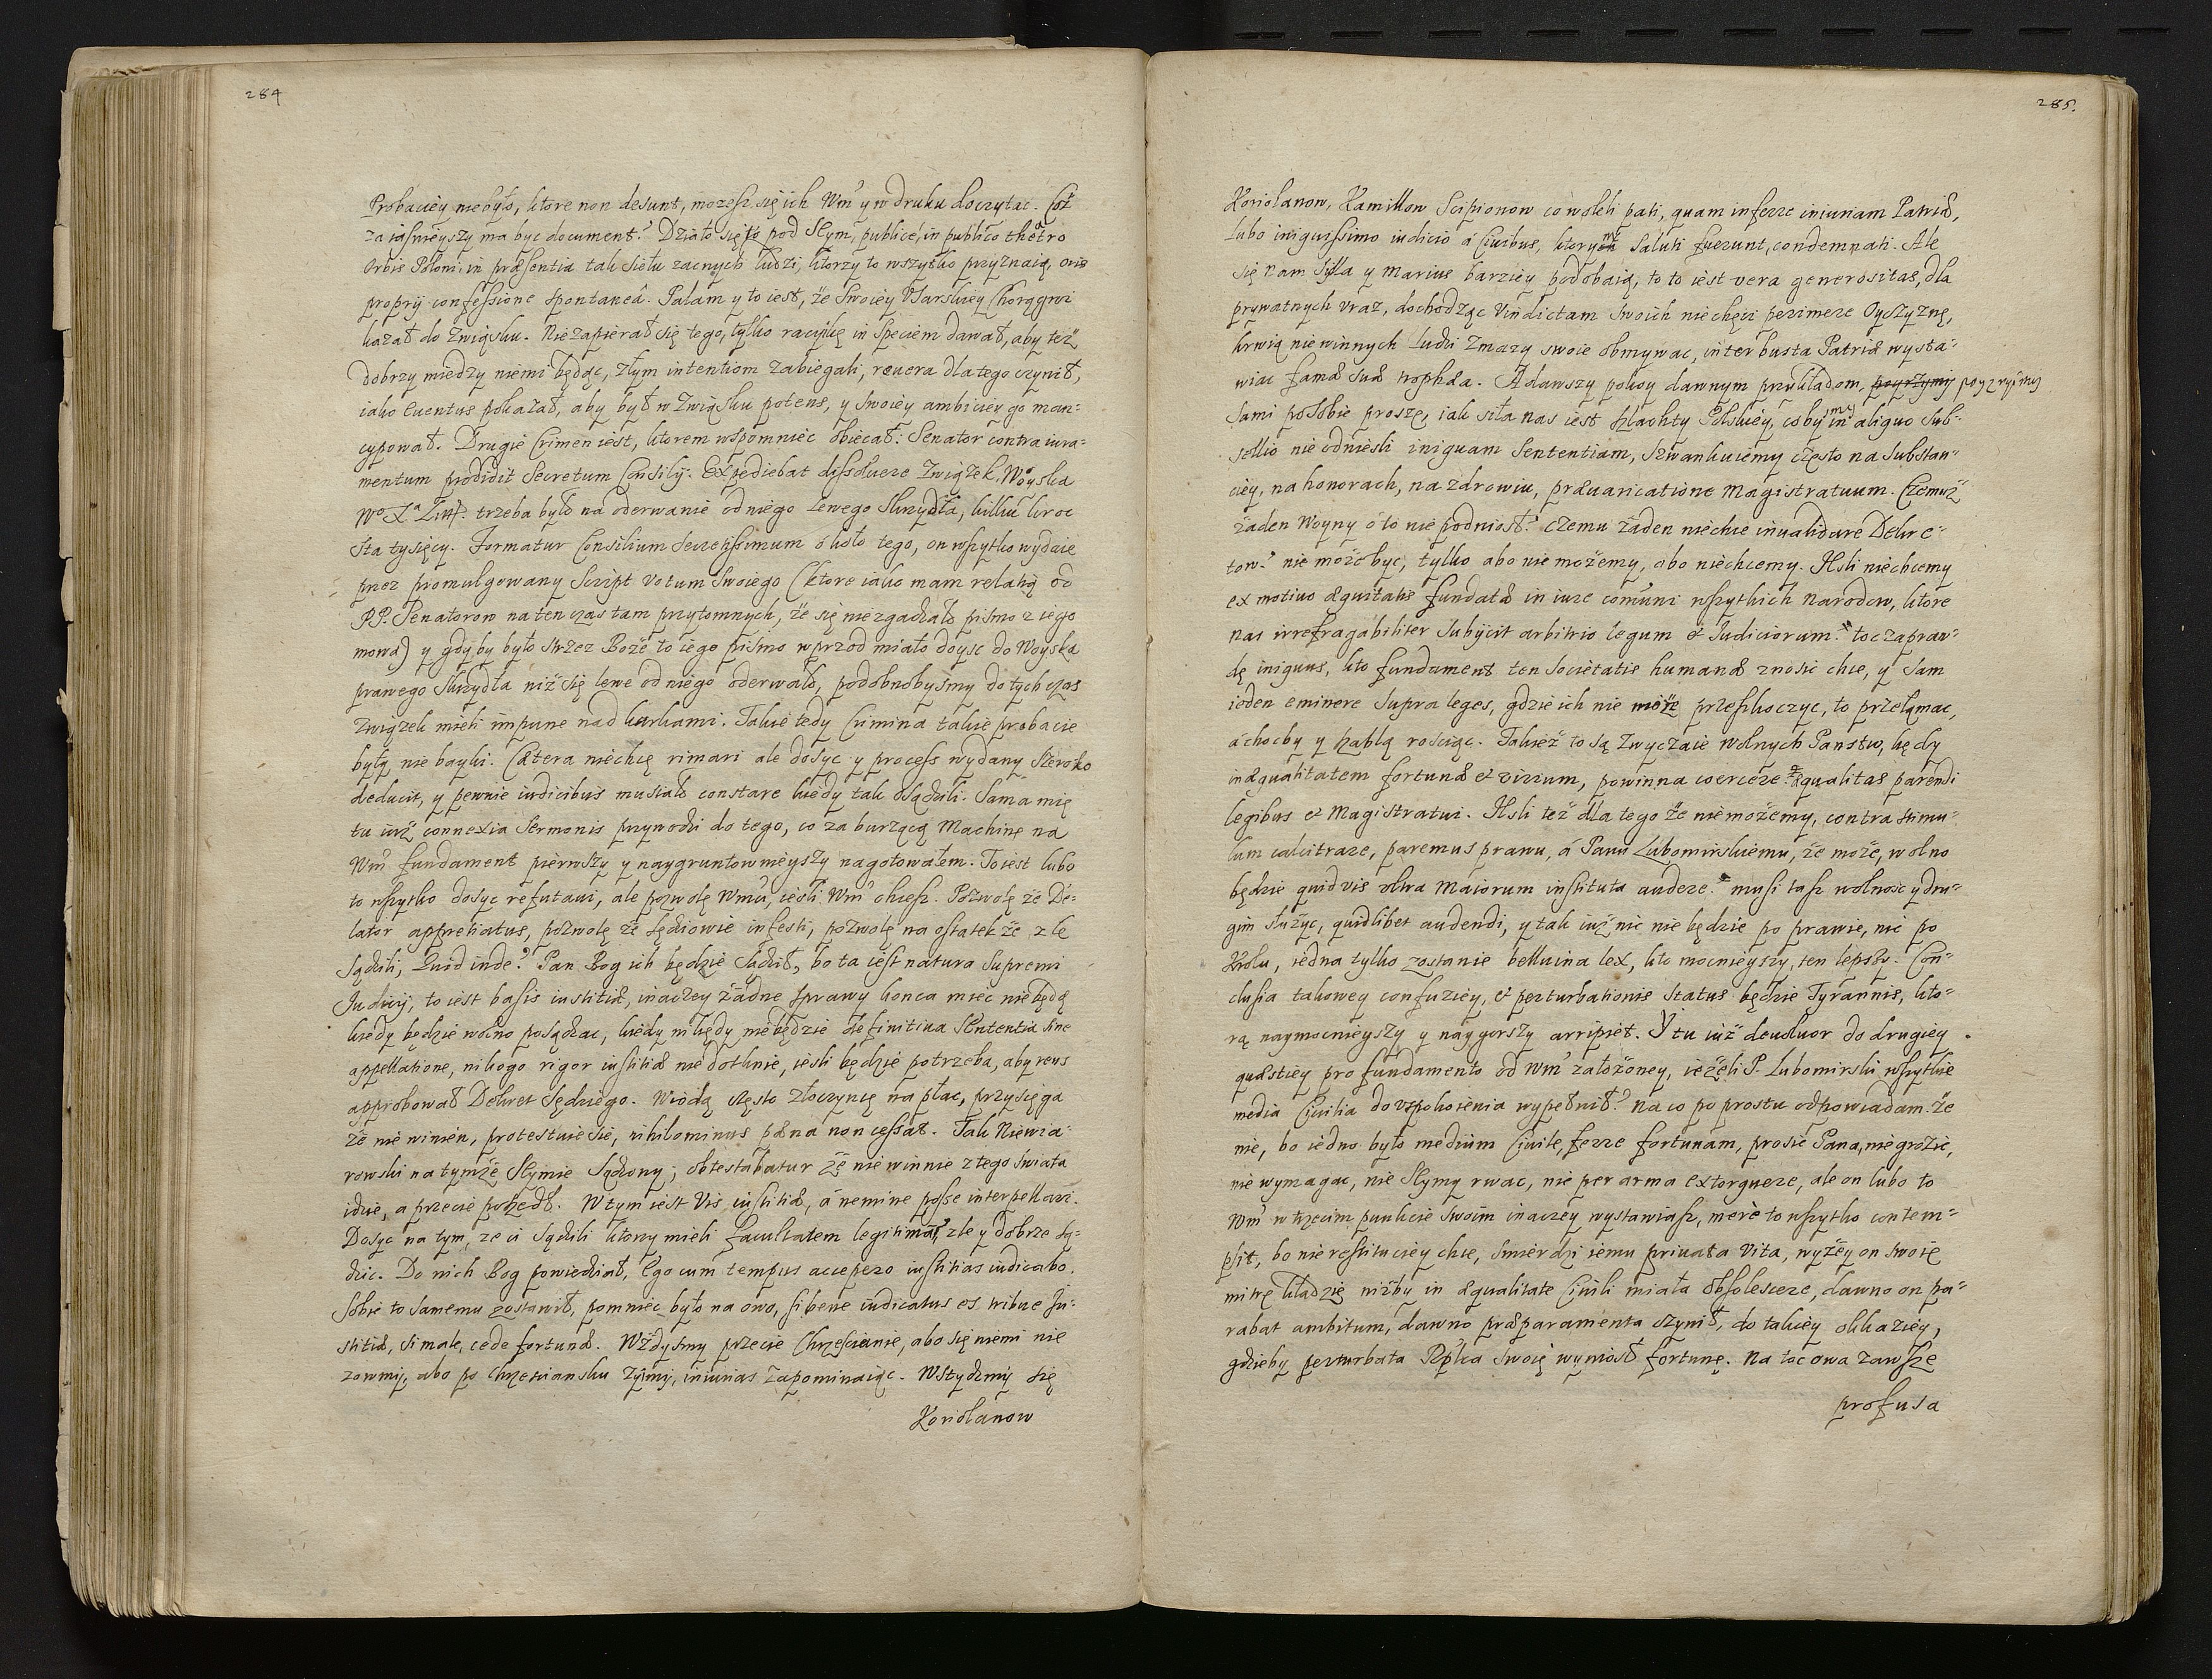 284
Probaciey niebyło, ktore non desunt, możesz się ich Wm̃ y w druku doczytac. Coż
za iaśnieyszy ma byc document? Działo się to pod Seym, publicè, in publico theatro
Orbis Poloni, in præsentia tak siełu zacnych ludzi, ktorzy to wszytko przyznaią, oris
proprij confessione spontaneâ. Palam y to iest, że swoiey Vsarskiey Chorągwi
kazał do Związku. Niezapierał się tego, tylko racyikę in speciem dawał, aby też
dobrzy miedzy niemi będąc, złym intentiom zabiegali, revera dla tego czynił,
iako Euentus pokazał, aby był w Związku potens, y swoiey ambiciey go man=
cypował. Drugie Crimen iest, ktorem wspomniec obiecał: Senator contra iura=
mentum prodidit Secretum Consilij. Expediebat dissoluere Związek, Woyska
Wo Xa Litt. trzeba było na oderwanie od niego Lewego Skrzydła, kilku kroc
sta tysięcy. Formatur Consilium secretissimum około tego, on wszytko wydaie
przez promulgowany Script votum swoiego (ktore iako mam relatią od
PP. Senatorow na ten czas tam przytomnych, że się niezgadzało pismo z iego
mową) y gdyby było strzez Boże to iego pismo wprzod miało doysc do Woyska
prawego skrzydła niż się lewe od niego oderwało, podobnobysmy do tych czas
Związek mieli impune nad karkami. Takie tedy Crimina takie probacie
były nie bayki. Cætera niechcę rimari ale dosyc y process wydany szeroko
deducit, y pewnie iudicibus musiało constare kiedy tak osądzili. Sama mię
tu iuż connexia Sermonis przywodzi do tego, co za burzącą Machinę na
Wm̃ fundament pierwszy y naygruntownieyszy nagotowałem. To iest lubo
to wszytko dosyc refutaui, ale pozwolę Wmu, iesli Wm̃ chcesz. Pozwolę że De=
lator appretiatus, pozwolę że sędziowie infesti, pozwolę na ostatek że zle
sądzili, Quid inde? Pan Bog ich będzie sądził, bo ta iest natura Supremi
Iudicij, to iest basis iustitiæ, inaczey żadne sprawy konca miec niebędą
kiedy będzie wolno posądzac, kiedy nikędy niebędzie definitiua Sententia sine
appellatione, nikogo rigor iustitiæ niedotknie, iesli będzie potrzeba, aby reus
approbował Dekret Sędziego. Wiodą często złoczyncę na plac, przysięga
że nie winien, protestuie sie, nihilominus pæna non cessat. Tak Niewia=
rowski na tymże Seymie sądzony; obtestabatur że niewinnie z tego swiata
idzie, a przecie poszedł. W tym iest Vis iustitiæ, á nemine posse interpellari.
Dosyc na tym, ze ci sądzili ktorzy mieli facultatem legitimam, zle y dobrze są=
dzic. Do nich Bog powiedział, Ego cum tempus accepero iustitias iudicabo.
Sobie to samemu zostawił, pomniec było na owo, si bene iudicatus es tribue Iu=
stitiæ, si male, cede fortunæ. Wżdysmy przecie Chrzescianie, abo się niemi nie
zowmy, abo po chrzesciansku żyimy, iniurias zapominaiąc. Wstydzmy się
Koriolanow
285.
Koriolanow, Kamillow Scipionow co woleli pati, quam inferre iniuriam Patriæ,
lubo iniquissimo iudicio á Ciuibus, ktorym saluti fuerunt, condemnati. Ale
się nam Sylla y Marius barziey podobaią, to to iest vera generositas, dla
prywatnych vraz, dochodząc Vindictam swoich niechęci perimere Oyczyznę,
krwią niewinnych ludzi zmazy swoie obmywac, inter busta Patriæ wysta=
wiac famæ suæ trophæa. A dawszy pokoy dawnym przykładom, poyrzymy poyzrzyimy
sami po sobie proszę, iak siła nas iest szlachty Polskiey, cobysmy in aliquo sub=
sellio nie odniesli iniquam Sententiam, szwankuiemy często na substan=
ciey, na honorach, na zdrowiu, præuaricatione Magistratuum. Czemuż
żaden Woyny o to nie podniosł? czemu żaden niechce inualidare Dekre=
tow? nie może byc, tylko abo nie możemy, abo niechcemy. Iesli niechcemy
ex motiuo æquitatis fundatæ in iure com̃uni wszytkich Narodow, ktore
nas irrefragabiliter subijcit arbitrio legum et Iudiciorum. toc zapraw=
dę iniquus, kto fundament ten societatis humanæ znosic chce, y sam
ieden eminere supra leges, gdzie ich nie może przeskoczyc, to przełamac,
a chocby y szablą rosciąc. Takież to są zwyczaie wolnych Panstw, kędy
inæqualitatem fortunæ et virium, powinna coercere æqualitas parendi
legibus et Magistratui. Iesli też dla tego że niemożemy, contra stimu=
lum calcitrare, paremus prawu, á Panu Lubomirskiemu, że może, wolno
będzie quidvis vltra Maiorum instituta audere. musi tasz wolnosc y dru=
gim służyc, quidlibet audendi, y tak iuż nic nie będzie po prawie, nic po
Krolu, iedna tylko zostanie belluina lex, kto mocnieyszy, ten lepszy. Con=
clusia takowey confuziey, et perturbationis status będzie Tyrannis, kto=
rą naymocnieyszy y naygorszy arripiet. Y tu iuż deuoluor do drugiey
quæstiey pro fundamento od Wm̃ założoney, ieżeli P. Lubomirski wszytkie
media Ciuilia do vspokoienia wypełnił? Na co po prostu odpowiadam. że
nie, bo iedno było medium Ciuile, ferre fortunam, prosic Pana, nie grozic,
nie wymagac, nie Seymy rwac, nie per arma extorquere, ale on lubo to
Wm̃ w trzecim punkcie swoim inaczey wystawiasz, merè to wszytko contem=
psit, bo nie restituciey chce, smierdzi iemu priuata Vita, wyżey on swoię
mitrę kładzie niżby in æqualitate Ciuili miała obsolescere, dawno on pa=
rabat ambitum, dawno præparamenta czynił, do takiey okkaziey,
gdzieby perturbata Rp̃lica swoię wyniosł fortunę. Na toc owa zawsze
profusa